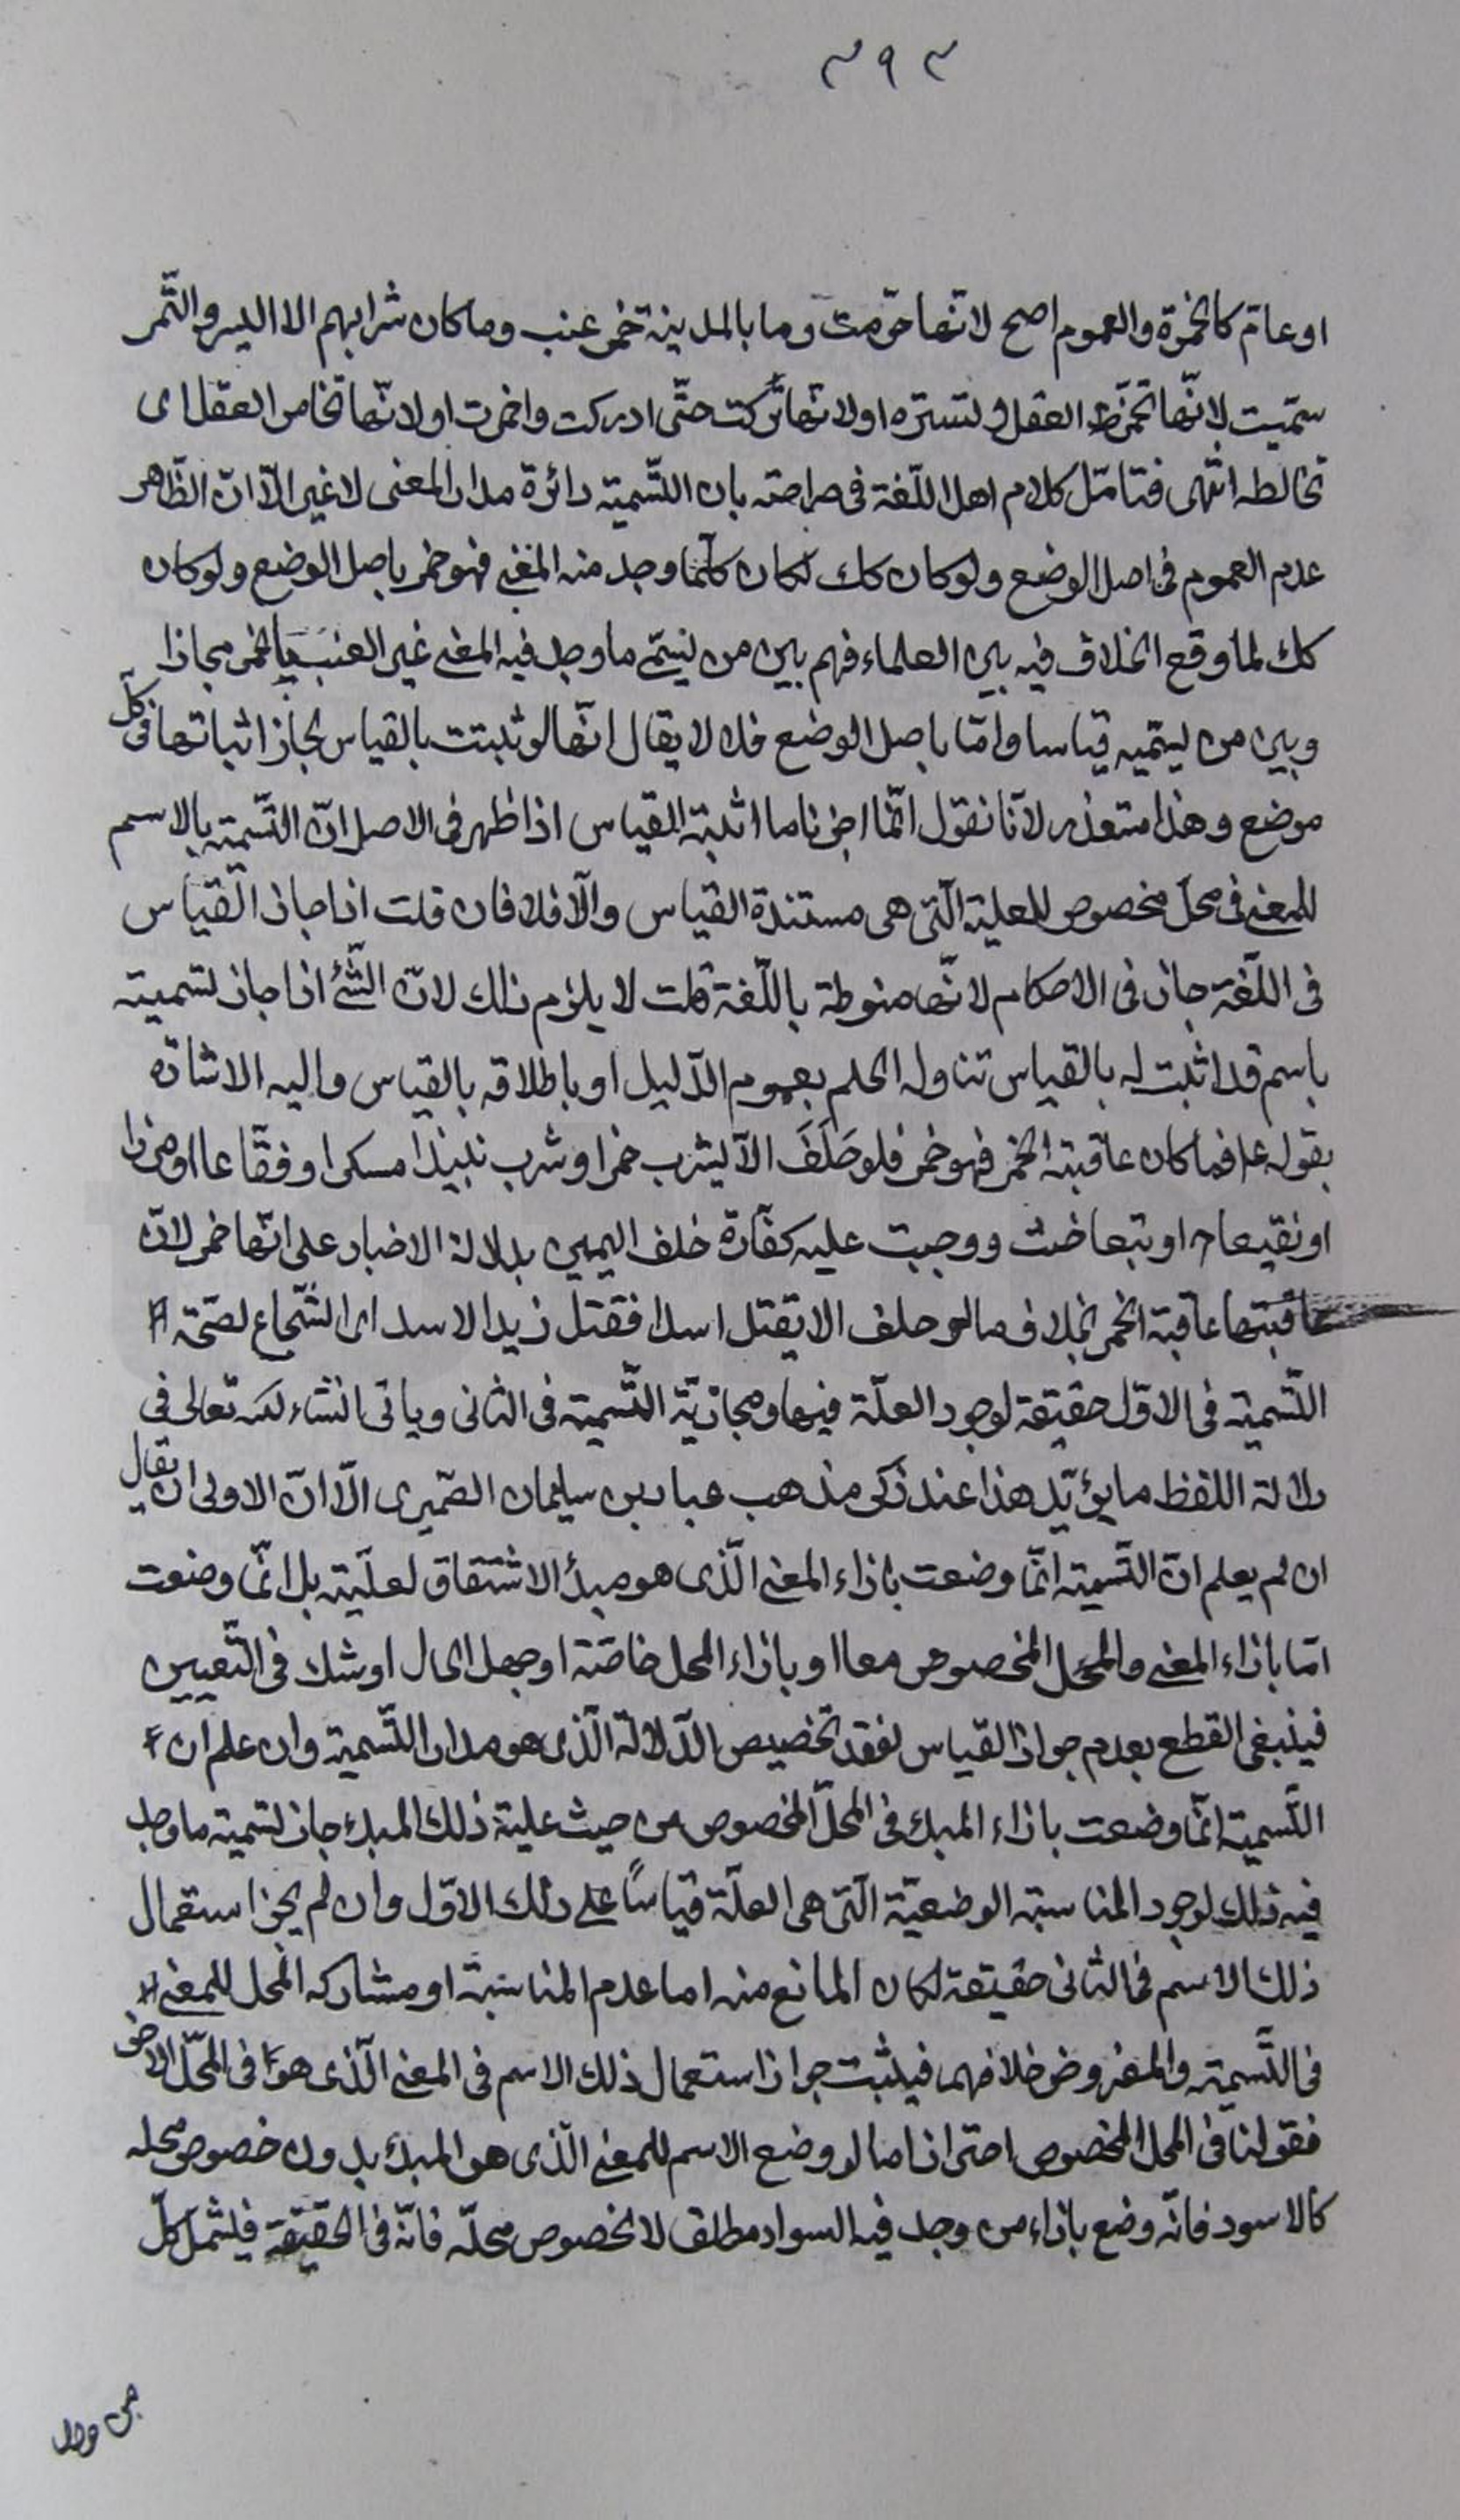 ٣٩٣
او عام كالخمرة والعموم اصح لانّها حرّمت وما بالمدينة خمر عنب وما كان شرابهم الا البسر والتّمر
سمّيت لانّها تخمر العقل و تستره او لانّها تركت حتّى ادركت واختمرت او لانّها تخامر العقل اى
تخالطه انتهى فتامّل كلام اهل اللّغة فى صراحته بان التّسمية دائرة مدار المعنى لا غير الّا انّ الظّاهر
عدم العموم فى اصل الوضع ولو كان كك لكان كلّما وجد منه المعنى فهو خمر باصل الوضع ولو كان
كك لما وقع الخلاف فيه بين العلماء فهم بين من يسمّى ما وجد فيه المعنى غير العنب بالخمر مجازا
وبين من يسمّيه قياسا وامّا باصل الوضع فلا لا يقال انّها لو ثبتت بالقياس لجاز اثباتها فى كلّ
موضع وهذا متعذر لانّا نقول انّما اجزناما اثبته القياس اذا ظهر فى الاصل انّ التّسمية بالاسم
للمعنى فى محلّ مخصوص للعلية الّتى هى مستندة القياس والّا فلا فان قلت اذا جاز القياس
فى اللّغة جاز فى الاحكام لانّها منوطة باللّغة قلت لا يلزم ذلك لانّ الشّئ اذا جاز تسميته
باسم قد اثبت له بالقياس تناوله الحكم بعموم الدّليل او باطلاقه بالقياس واليه الاشارة
بقوله ع فما كان عاقبته الخمر فهو خمر فلو حَلَفَ الّا يشرب خمرا وشرب نبيذا مسكرا او فقّاعا او مزرا
او نقيعا او بتعا حنث ووجبت عليه كفّارة خلف اليمين بدلالة الاخبار على انّها خمر لانّ
عاقبتها عاقبة الخمر بخلاف ما لو حلف الا يقتل اسدا فقتل زيدا الاسد اى الشّجاع لصحّة
التّسمية فى الاوّل حقيقة لوجود العلّة فيها ومجازيّة التّسمية فى الثانى وياتى انشاء الله تعالى فى
دلالة اللفظ ما يؤيّد هذا عند ذكر مذهب عباد بن سليمان الصّميرى الّا انّ الاولى ان يقال
ان لم يعلم انّ التّسمية انّما وضعت بازاء المعنى الّذى هو مبدأ الاشتقاق لعلّيته بل انّما وضعت
امّا بازاء المعنى والمحل المخصوص معا او بازاء المحل خاصّة او جهل الحال او شك فى التّعيين
فينبغى القطع بعدم جواز القياس لفقد تخصيص الدّلالة الّذى هو مدار التّسمية وان علم ان
التّسمية انّما وضعت بازاء المبدء فى المحلّ المخصوص من حيث علية ذلك المبدء جاز تسمية ما وجد
فيه ذلك لوجود المناسبة الوضعيّة الّتى هى العلّة قياسًا على ذلك الاوّل وان لم يجز استعمال
ذلك الاسم فى الثانى حقيقة لكان المانع منه اما عدم المناسبة او مشاركة المحل للمعنى
فى التّسمية والمفروض خلافهما فيثبت جواز استعمال ذلك الاسم فى المعنى الّذى هو فى المحلّ الاخر
فقولنا فى المحل المخصوص احترازا ما لو وضع الاسم للمعنى الّذى هو المبدء بدون خصوص محله
كالاسود فانّه وضع بازاء من وجد فيه السواد مطلق لا لخصوص محلّه فانّه فى الحقيقة فيشمل كلّ